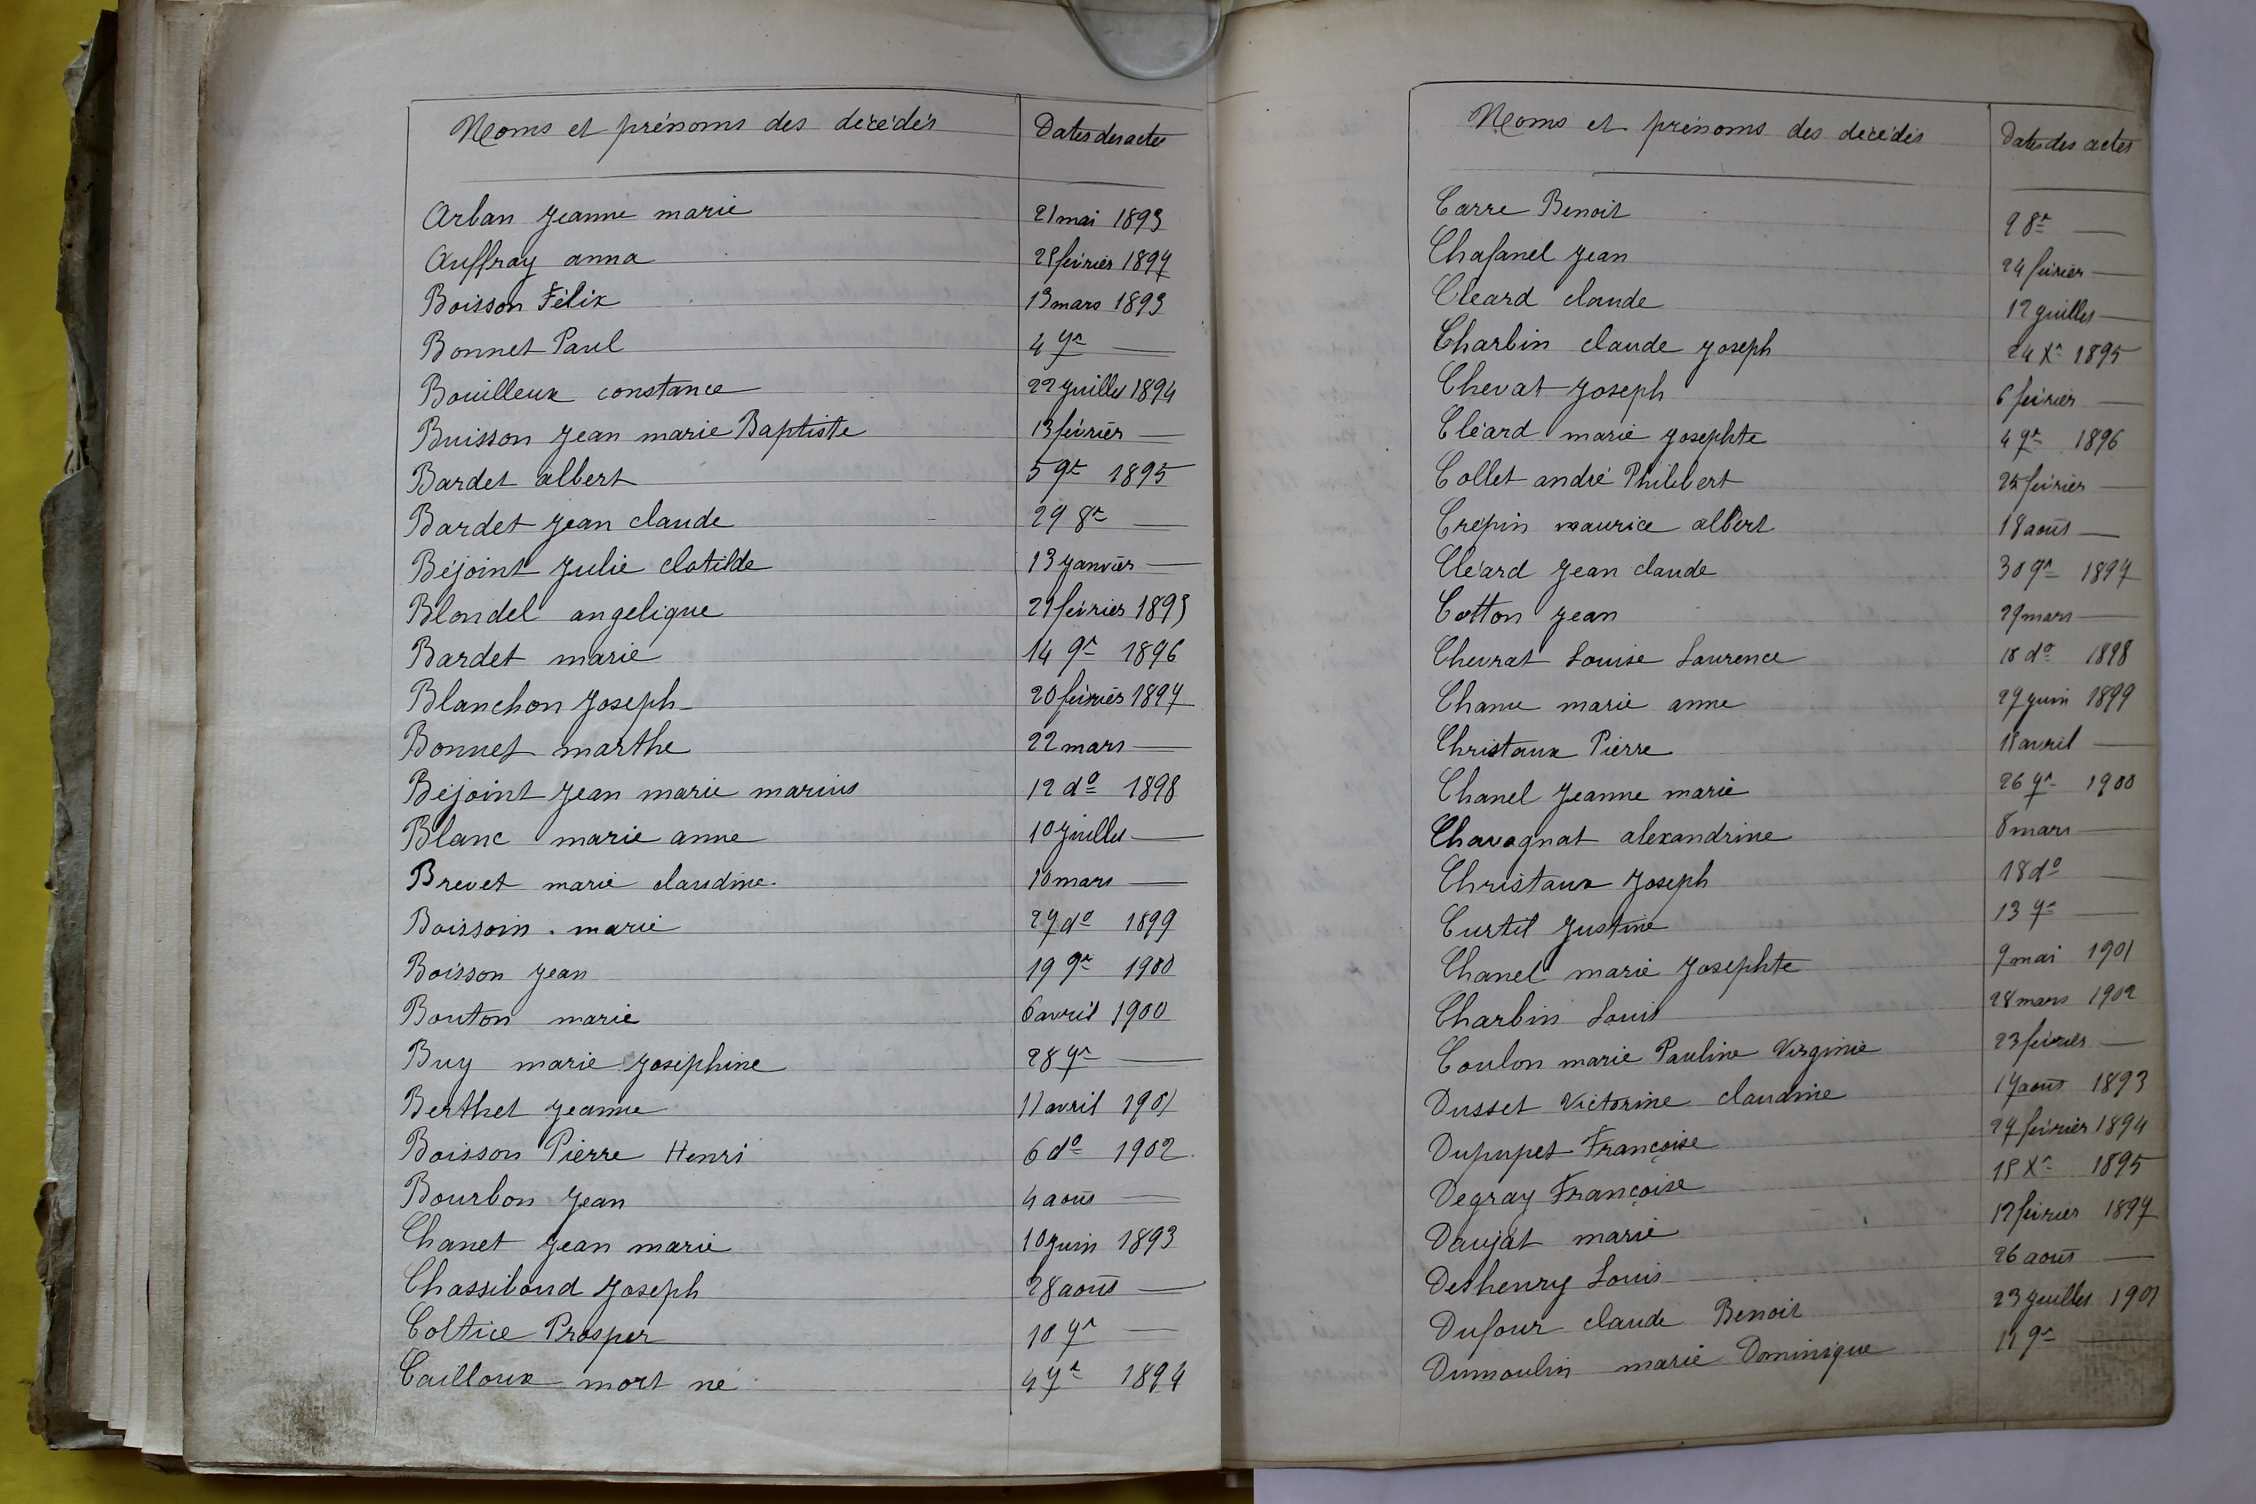 Noms et prénoms des décédés Dates des actes
Arban Jeanne marie 21 mai 1893
Auffray anna 25 février 1897
Boisson Félix 13 mars 1893
Bonnet Paul 4 7re —
Bouilleux constance 22 juillet 1894
Buisson Jean marie Baptiste 13 février —
Bardet albert 5 9re 1895
Bardet Jean claude 29 8re —
Béjoint Julie clotilde 13 janvier —
Blondel angelique 21 février 1895
Bardet marie 14 9re 1896
Blanchon Joseph 20 février 1897
Bonnet marthe 22 mars —
Béjoint Jean marie marius 12 do 1898
Blanc marie anne 10 juillet —
Brevet marie claudine 10 mars —
Boissoin marie 27 do 1899
Boisson Jean 19 9re 1900
Bouton marie 6 avril 1900
Buy marie Joséphine 28 7re —
Berthet Jeanne 11 avril 1901
Boisson Pierre Henri 6 do 1902
Bourbon Jean 4 août —
Chanet Jean marie 10 juin 1893
Chassiboud Joseph 28 août —
Coltice Prosper 10 7re —
Cailloux mort né 4 7re 1894
Noms et prénoms des décédés Dates des actes
Carre Benoit 9 8re —
Chafanel Jean 24 février —
Cleard claude 12 juillet —
Charbin claude Joseph 24 Xre 1895
Chevat Joseph 6 février —
Cléard marie Josephte 4 9re 1896
Collet andré Philibert 25 février —
Crépin maurice albert 18 août —
Cléard Jean claude 30 9re 1897
Cotton Jean 29 mars —
Chevrat Louise Laurence 10 do 1898
Chanu marie anne 27 juin 1899
Christaux Pierre 11 avril —
Chanel Jeanne marie 26 7re 1900
Chavagnat alexandrine 8 mars —
Christaux Joseph 18 do —
Curtil Justine 13 7re —
Chanel marie Josephte 9 mai 1901
Charbin Louis 28 mars 1902
Coulon marie Pauline Virginie 23 février —
Dusset Victorine claudine 17 août 1893
Dupupet Françoise 27 février 1894
Degray Françoise 15 Xre 1895
Daujat marie 12 février 1897
Deshenry Louis 26 août —
Dufour claude Benoit 23 juillet 1901
Dumoulin marie Dominique 12 9re —